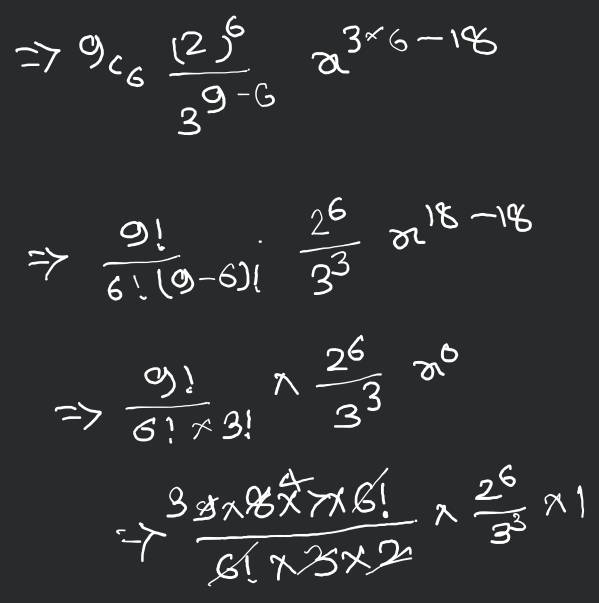 ⇒ 9c₆ (2)⁶/3⁹⁻⁶ x³ˣ⁶⁻¹⁸
⇒ 9!/6!(9-6)! · 2⁶/3³ x¹⁸⁻¹⁸
⇒ 9!/6!×3! × 2⁶/3³ x⁰
⇒ 3 9×8 4×7×6!/6!×3×2 × 2⁶/3³ ×1